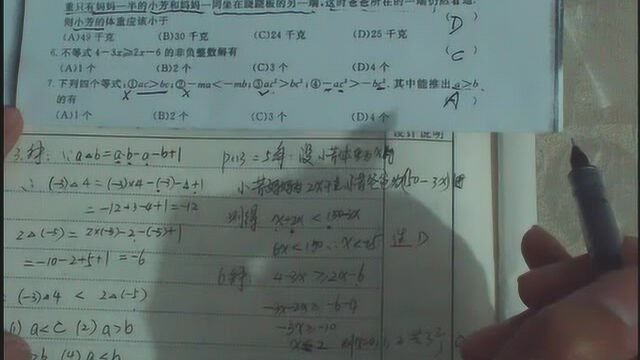 重只有妈妈一半的小芳和妈妈一同坐在跷跷板的另一端,这时爸爸所在的一端仍然着地.
则小芳的体重应该小于 ( D )
(A)49 千克 (B)30 千克 (C)24 千克 (D)25 千克
6. 不等式 4-3x≥2x-6 的非负整数解有 ( C )
(A)1 个 (B)2 个 (C)3 个 (D)4 个
7. 下列四个等式:①ac>bc;②-ma<-mb;③ac²>bc²;④-ac²>-bc². 其中能推出 a>b
的有 ( A )
(A)1 个 (B)2 个 (C)3 个 (D)4 个
设计说明
∵a△b=a·b-a-b+1
∴(-3)△4=(-3)×4-(-3)-4+1
=-12+3-4+1=-12
2△(-5)=2×(-5)-2-(-5)+1
=-10-2+5+1=-6
(-3)△4 < 2△(-5)
(1) a<c (2) a>b
(4) a<b
P113 = 5
则得 x+2x<150-3x
6x<150 ∴x<25 选 D
4-3x≥2x-6
-3x-2x≥-6-4
-5x≥-10